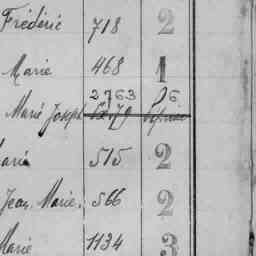 Frédéric 718 2
Marie 468 1
2763 6
Marie Joseph
Marie 515 2
Jean Marie. 566 2
Marie 1134 3